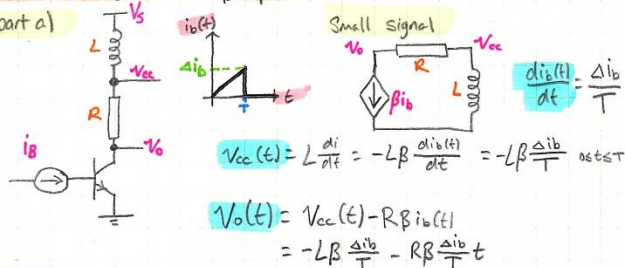 part a)
Vs
L
Vcc
R
Vo
iB
ib(t)
Δib
T
t
Small signal
Vo
R
Vcc
βib
L
dib(t)/dt = Δib/T
Vcc(t) = L di/dt = -Lβ dib(t)/dt = -Lβ Δib/T 0≤t≤T
Vo(t) = Vcc(t) - Rβ ib(t)
= -Lβ Δib/T - Rβ Δib/T t